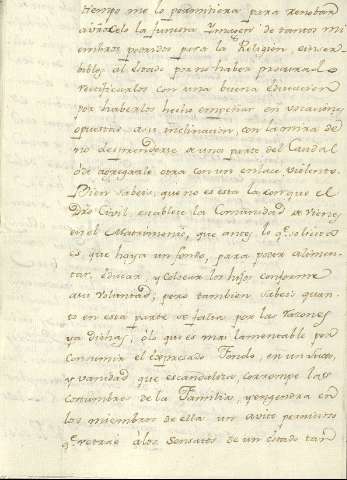 tiempo me lo permitiera para renobar
a vista la funesta Imagen de tantos mi
embros perdidos para la Religion, é inser
bibles al Estado por no haber procurado
rectificarlos con una buena Educacion
por haberlos hecho empeñar en vocaciones
opuestas a su inclinacion, con la mira de
no desprenderse de una parte del Caudal
ó de agregarle otra con un enlace violento.
Bien sabeis, que no es esta la con que el
Dro Civil establece la Comunidad de vienes
en el Matrimonio, que antes lo q.e solicita
es, que haya un fondo, para poder alimen
tar, educar, y colocar los hijos conforme
a su voluntad, pero tambien sabeis quan
to en esta parte se falta por las razones
ya dichas, ó lo que es mas lamentable por
consumir el expresado fondo, en un luxo,
y vanidad que escandaliza, corrompe las
costumbres de la Familia, y engendra en
los miembros de ella un avito pernicioso
q.e retrae á los sensatos de un estado tan